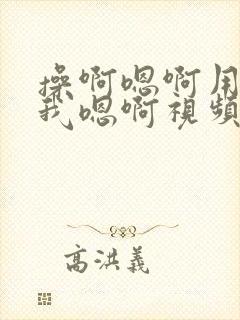 操啊嗯啊用
我嗯啊視頻
高洪義